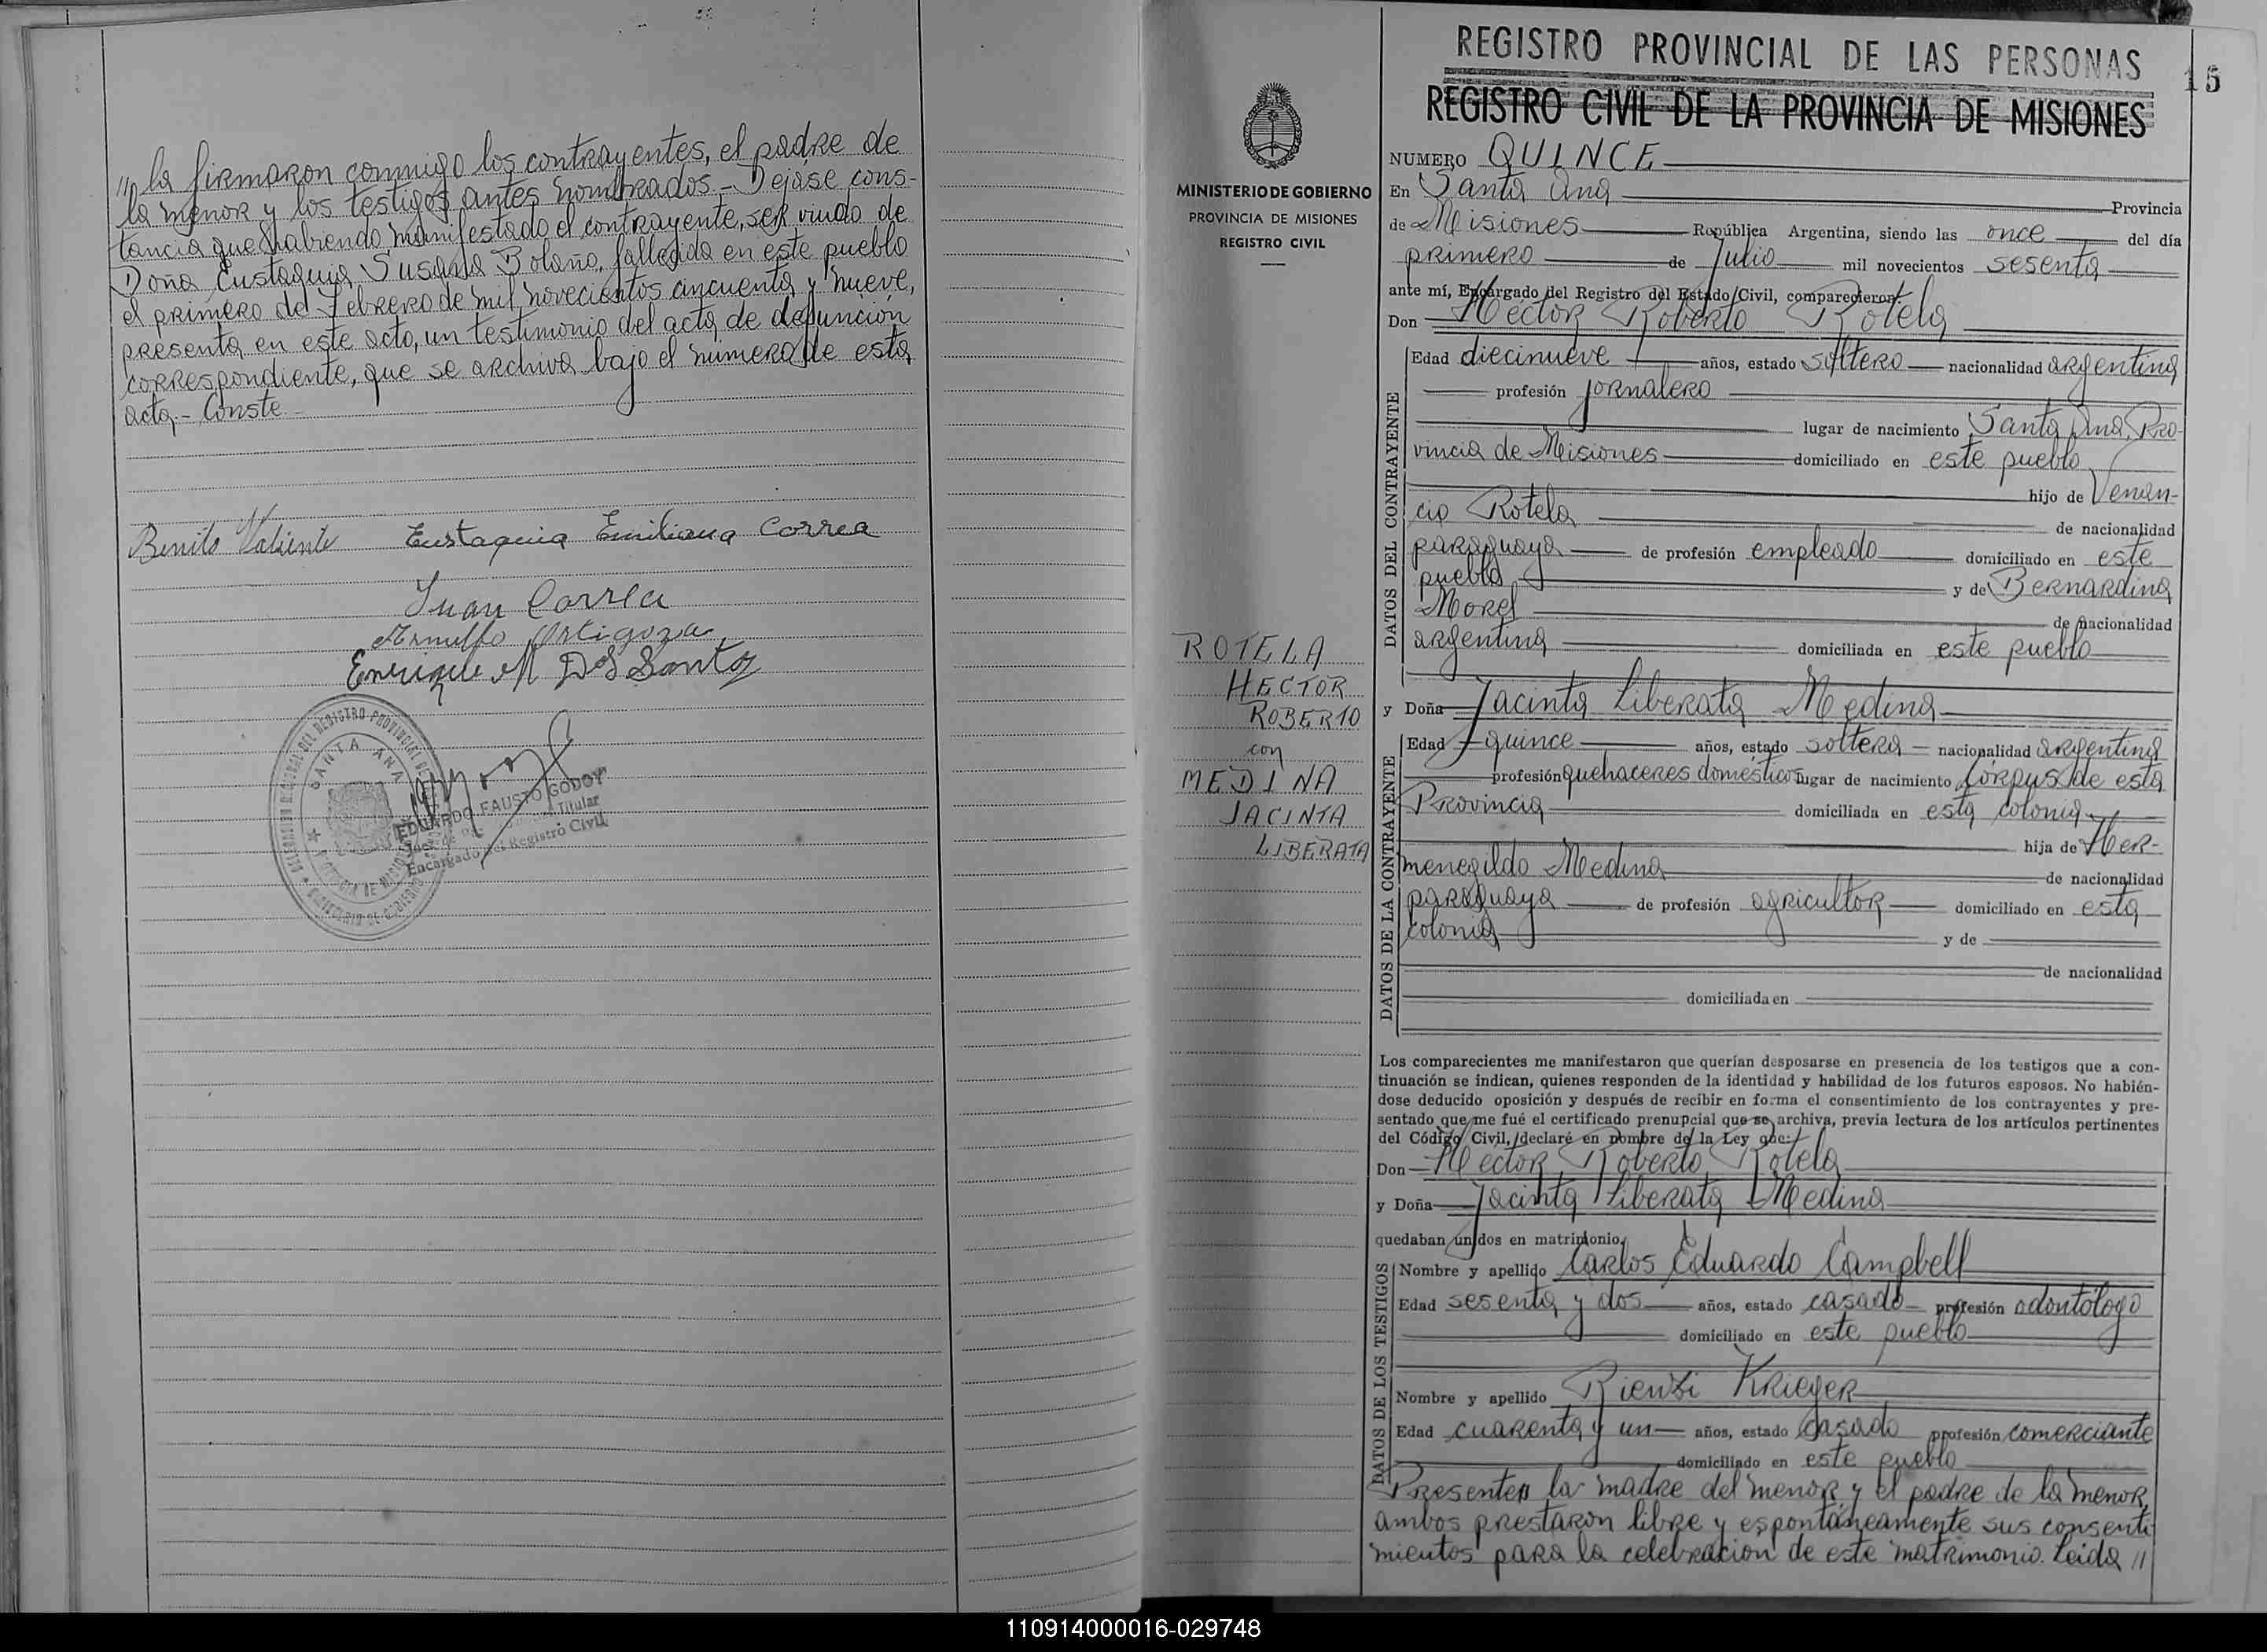 " la firmaron conmigo los contrayentes, el padre de
la menor y los testigos antes nombrados.- Dejase cons-
tancia que habiendo manifestado el contrayente, ser viudo de
Doña Eustaquia Susana Bolaño, fallecida en este pueblo
el primero de Febrero de mil novecientos cincuenta y nueve,
presenta en este acto, un testimonio del acta de defunción
correspondiente, que se archiva bajo el número de esta
acta.- Conste.
Benito Valiente Eustaquia Emiliana Correa
Juan Correa
Arnulfo Ortigoza
Enrique M Dos Santos
SANTA ANA
EDUARDO FAUSTO GODOY
Titular
Encargado del Registro Civil
MINISTERIO DE GOBIERNO
PROVINCIA DE MISIONES
REGISTRO CIVIL
ROTELA
HECTOR
ROBERTO
con
MEDINA
JACINTA
LIBERATA
REGISTRO PROVINCIAL DE LAS PERSONAS
15
REGISTRO CIVIL DE LA PROVINCIA DE MISIONES
NUMERO QUINCE
En Santa Ana Provincia
de Misiones República Argentina, siendo las once del día
primero de Julio mil novecientos sesenta
ante mí, Encargado del Registro del Estado Civil, comparecieron:
Don Héctor Roberto Rotela
DATOS DEL CONTRAYENTE
Edad diecinueve años, estado soltero nacionalidad argentina
profesión jornalero
lugar de nacimiento Santa Ana, Pro-
vincia de Misiones domiciliado en este pueblo
hijo de Venan-
cio Rotela de nacionalidad
paraguaya de profesión empleado domiciliado en este
pueblo y de Bernardina
Morel de nacionalidad
argentina domiciliada en este pueblo
y Doña Jacinta Liberata Medina
DATOS DE LA CONTRAYENTE
Edad quince años, estado soltera nacionalidad argentina
profesión quehaceres domésticos lugar de nacimiento Córpus de esta
Provincia domiciliada en esta colonia
hija de Her-
menegildo Medina de nacionalidad
paraguaya de profesión agricultor domiciliado en esta
colonia y de
de nacionalidad
domiciliada en
Los comparecientes me manifestaron que querían desposarse en presencia de los testigos que a con-
tinuación se indican, quienes responden de la identidad y habilidad de los futuros esposos. No habién-
dose deducido oposición y después de recibir en forma el consentimiento de los contrayentes y pre-
sentado que me fué el certificado prenupcial que se archiva, previa lectura de los artículos pertinentes
del Código Civil, declaré en nombre de la Ley que:
Don Héctor Roberto Rotela
y Doña Jacinta Liberata Medina
quedaban unidos en matrimonio.
DATOS DE LOS TESTIGOS
Nombre y apellido Carlos Eduardo Campbell
Edad sesenta y dos años, estado casado profesión odontólogo
domiciliado en este pueblo
Nombre y apellido Rienzi Krieger
Edad cuarenta y un años, estado casado profesión comerciante
domiciliado en este pueblo
Presentes la madre del menor y el padre de la menor,
ambos prestaron libre y espontáneamente sus consenti-
mientos para la celebración de este matrimonio. Leida "
110914000016-029748